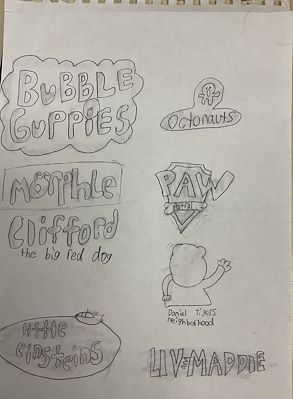 BUBBLE
GUPPIES
Octonauts
Möörphle
PAW
PATROL
Clifford
the big red dog
Daniel Tigers
Neighborhood
little
einsteins
LIV&MADDIE